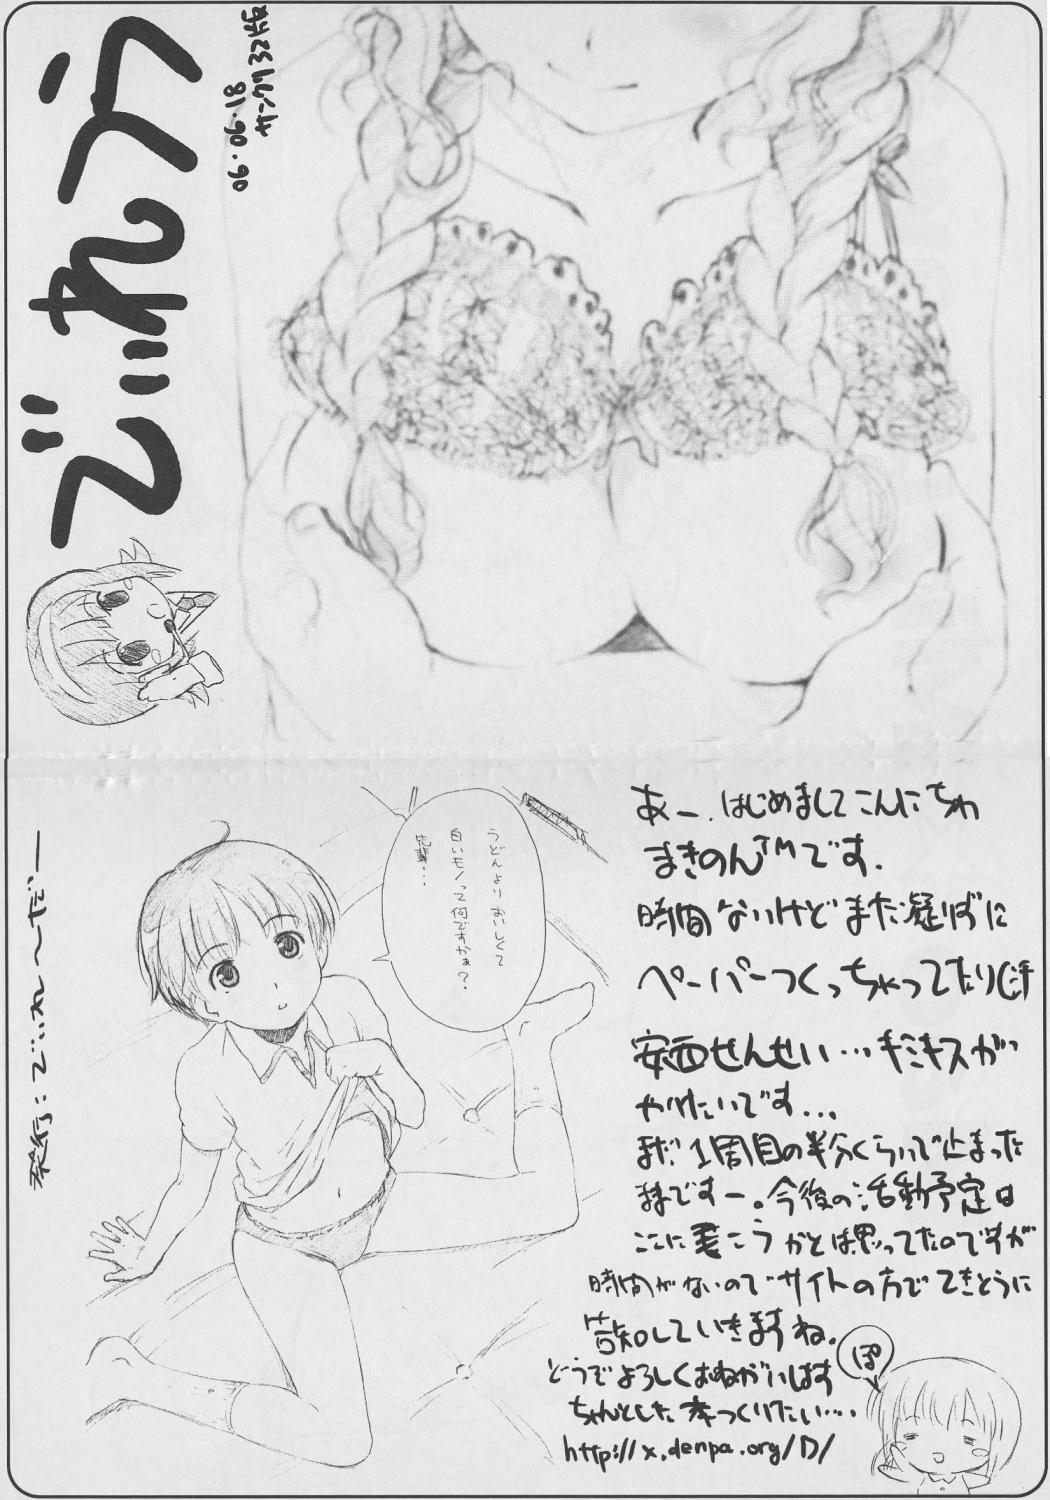 でいれう
06.06.18
サンクリ32版
うどんよりおいしくて
白いモノって何ですかぁ?
先輩・・
発行:でいれ〜だー
あー、はじめましてこんにちわ
まきのん™です.
時間ないけどまた凝りずに
ペーパーつくっちゃってたり(汗
安西せんせい…キミキスが
やりたいです...
まだ1周目の半分くらいで止まった
ままですー。今後の活動予定は
ここに書こうかとは思ってたのですが
時間がないのでサイトの方でてきとうに
告知していきますね.
どうぞよろしくおねがいします
ちゃんとした本つくりたい…
http://x.denpa.org/D/
ぽ